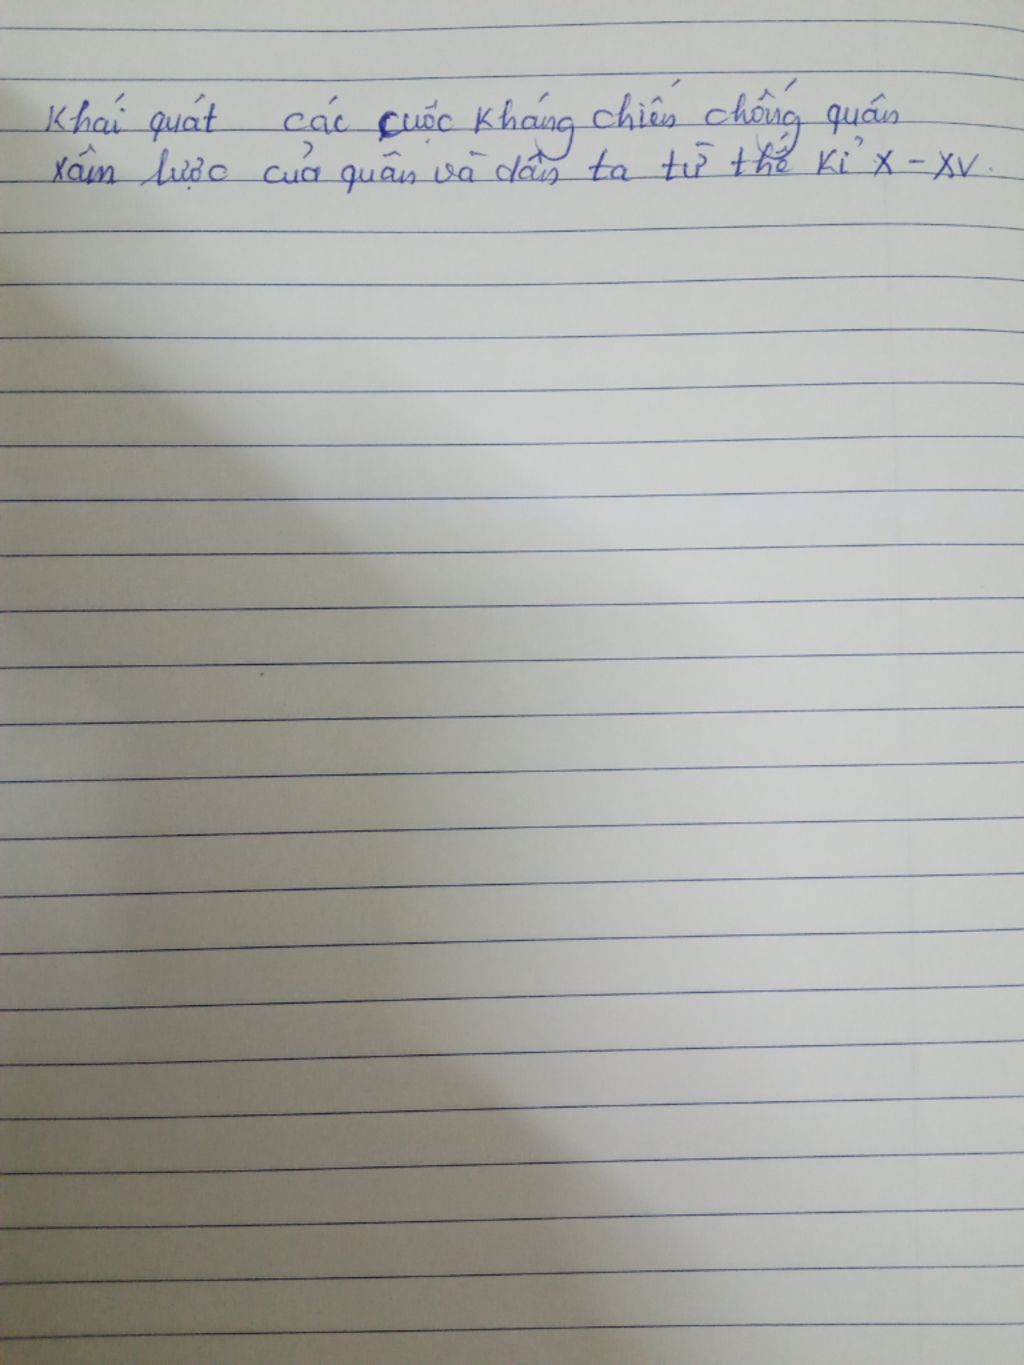 Khái quát các cuộc kháng chiến chống quân
xâm lược của quân và dân ta từ thế kỉ X - XV.